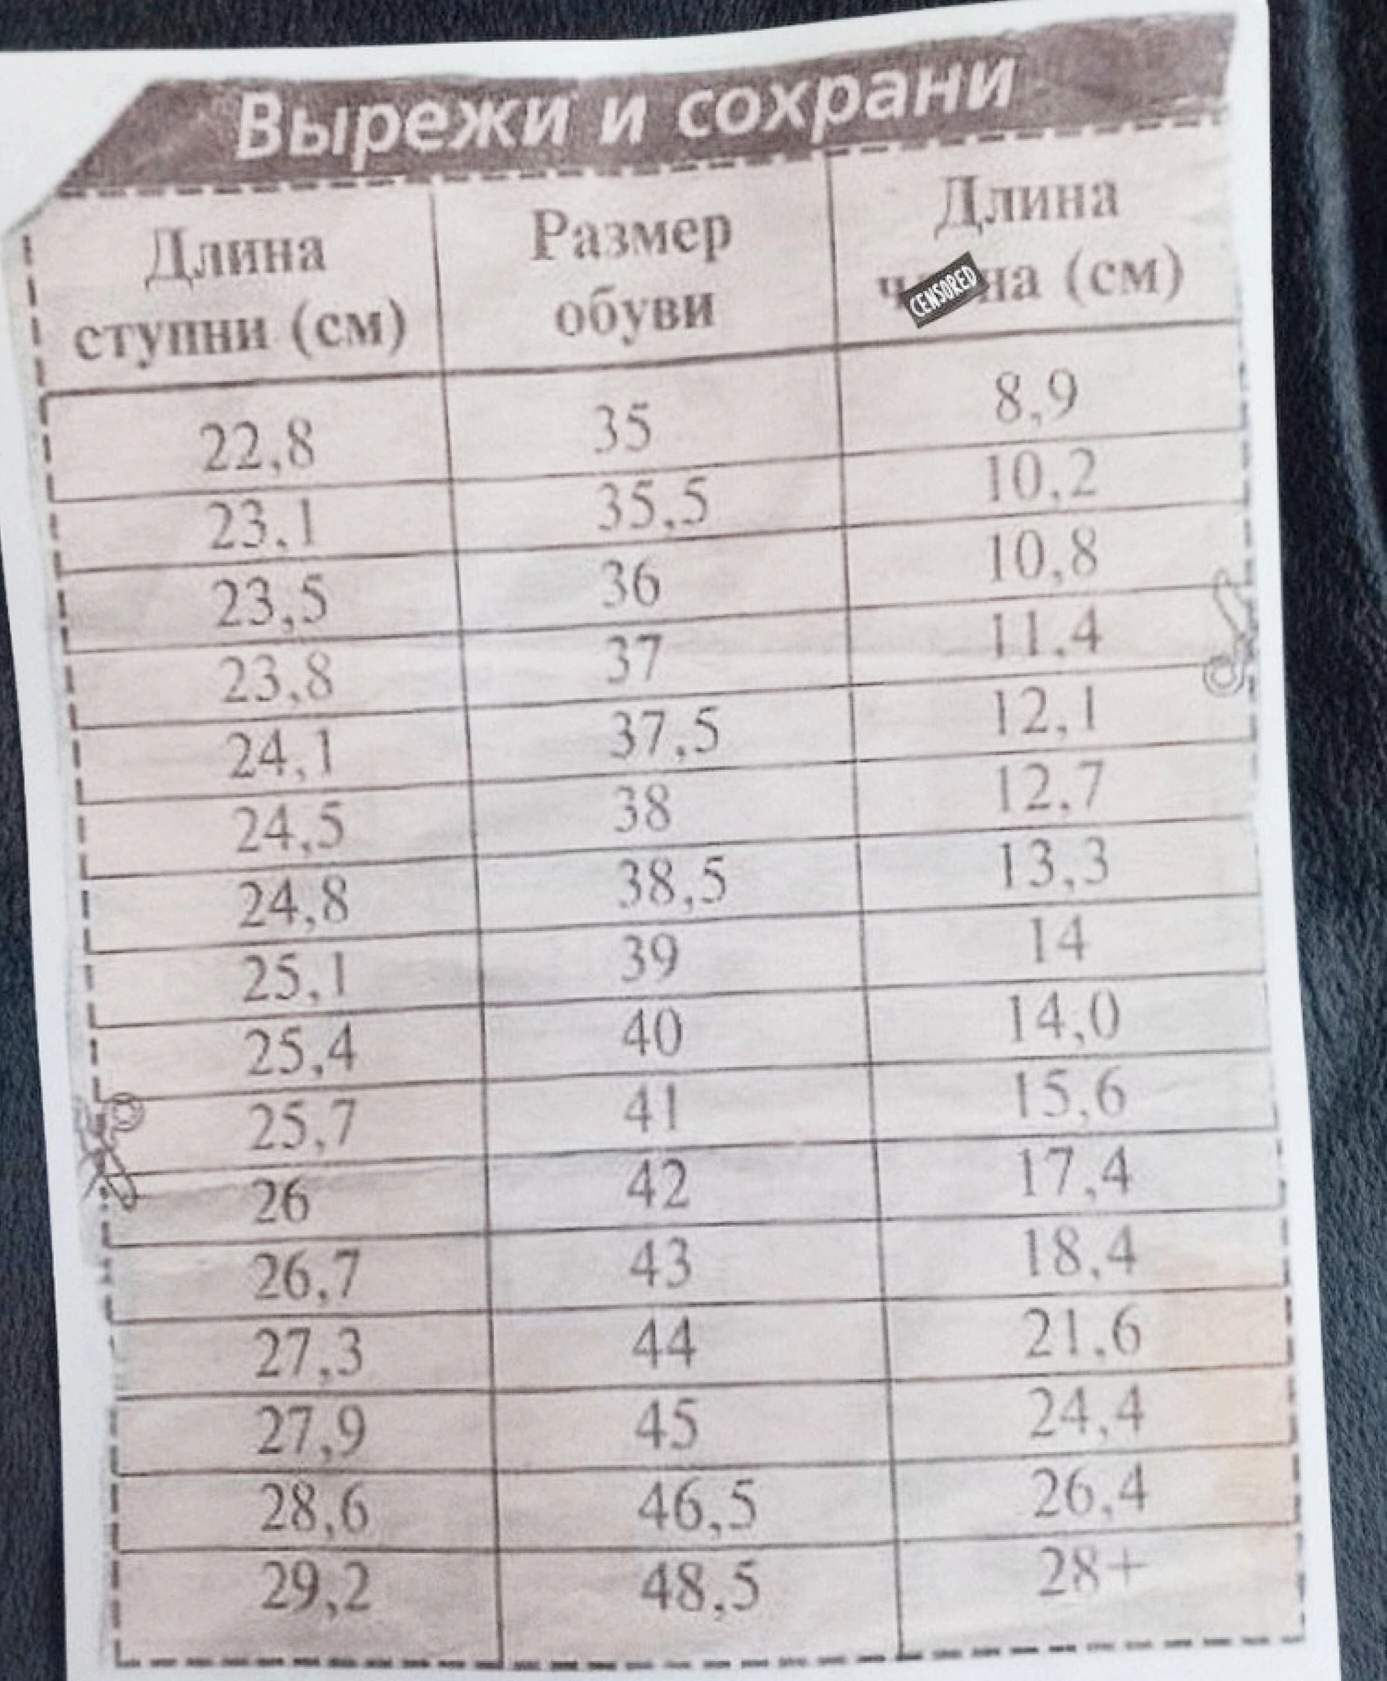 Вырежи и сохрани
Длина ступни (см) Размер обуви Длина (см)
CENSORED
22,8 35 8,9
23,1 35,5 10,2
23,5 36 10,8
23,8 37 11,4
24,1 37,5 12,1
24,5 38 12,7
24,8 38,5 13,3
25,1 39 14
25,4 40 14,0
25,7 41 15,6
26 42 17,4
26,7 43 18,4
27,3 44 21,6
27,9 45 24,4
28,6 46,5 26,4
29,2 48,5 28+